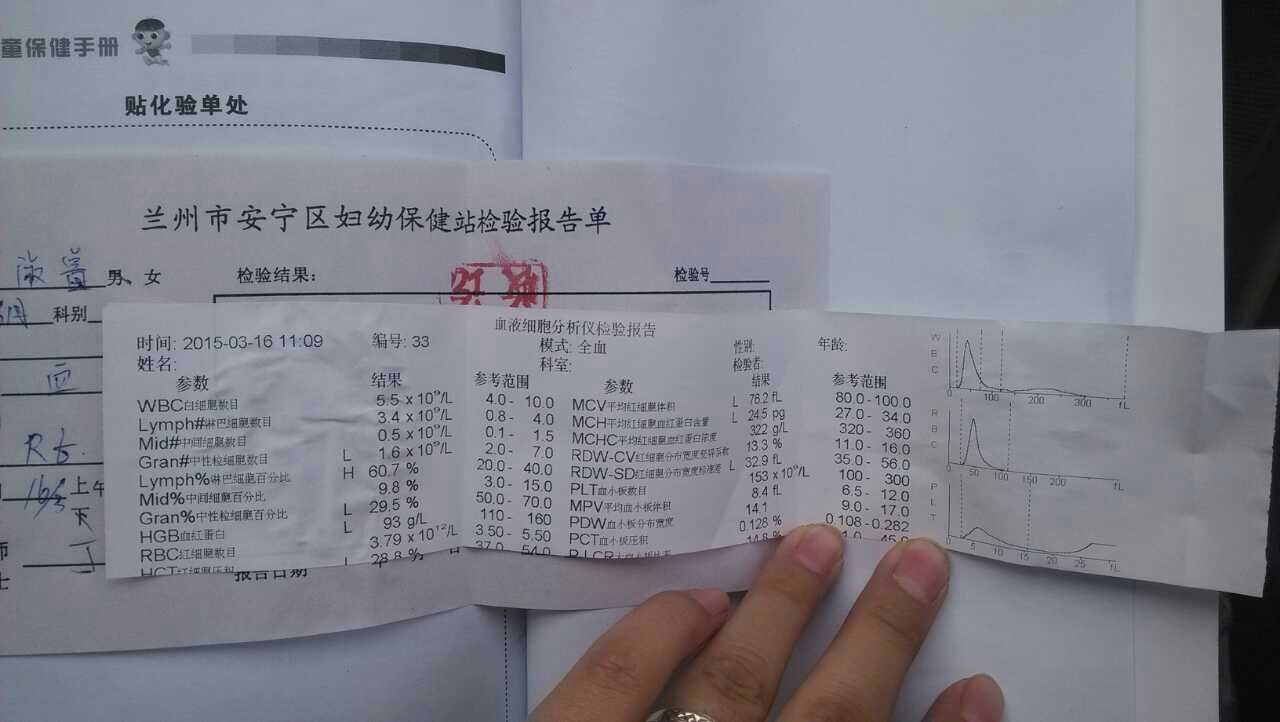 童保健手册
贴化验单处
兰州市安宁区妇幼保健站检验报告单
男、女 检验结果： 检验号
科别
血液细胞分析仪检验报告
时间: 2015-03-16 11:09 编号: 33 模式: 全血 性别: 年龄:
姓名: 科室: 检验者:
参数 结果 参考范围 参数 结果 参考范围
WBC白细胞数目 5.5 x 10^9/L 4.0 - 10.0 MCV平均红细胞体积 L 76.2 fL 80.0-100.0
Lymph#淋巴细胞数目 3.4 x 10^9/L 0.8 - 4.0 MCH平均红细胞血红蛋白含量 L 24.5 pg 27.0 - 34.0
Mid#中间细胞数目 0.5 x 10^9/L 0.1 - 1.5 MCHC平均红细胞血红蛋白浓度 322 g/L 320 - 360
Gran#中性粒细胞数目 L 1.6 x 10^9/L 2.0 - 7.0 RDW-CV红细胞分布宽度变异系数 13.3 % 11.0 - 16.0
Lymph%淋巴细胞百分比 H 60.7 % 20.0 - 40.0 RDW-SD红细胞分布宽度标准差 L 32.9 fL 35.0 - 56.0
Mid%中间细胞百分比 9.8 % 3.0 - 15.0 PLT血小板数目 153 x 10^9/L 100 - 300
Gran%中性粒细胞百分比 L 29.5 % 50.0 - 70.0 MPV平均血小板体积 8.4 fL 6.5 - 12.0
HGB血红蛋白 L 93 g/L 110 - 160 PDW血小板分布宽度 14.1 9.0 - 17.0
RBC红细胞数目 3.79 x 10^12/L 3.50 - 5.50 PCT血小板压积 0.128 % 0.108 -0.282
HCT红细胞压积 L 28.8 % 37.0 54.0 P-LCR 14.8 % 45.0
报告日期
WBC
100 200 300 fL
RBC
50 100 150 200 fL
PLT
5 10 15 20 25 fL